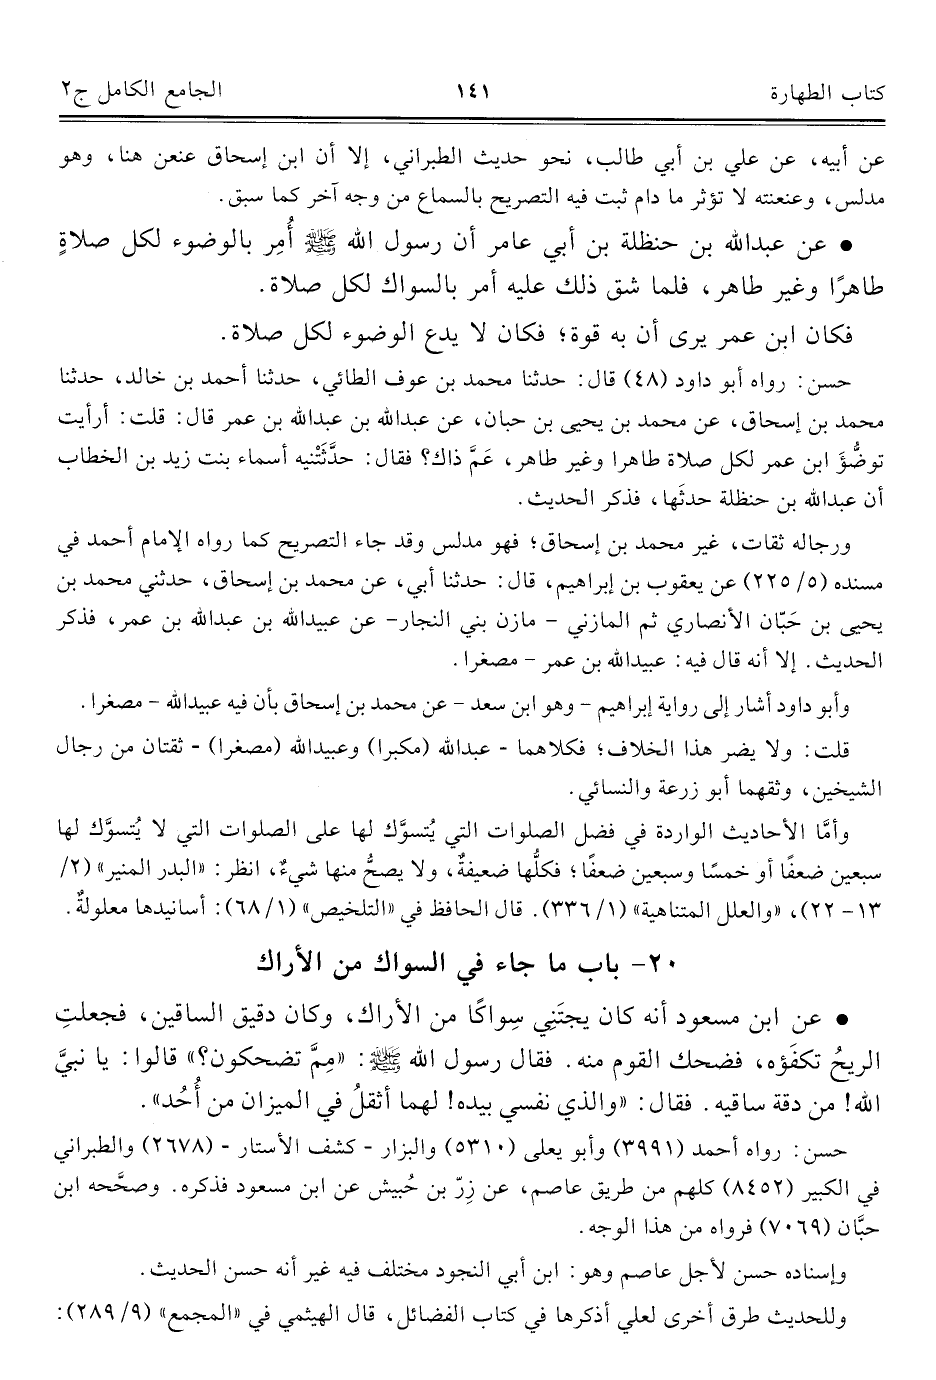 كتاب الطهارة ١٤١ الجامع الكامل ج٢
عن أبيه، عن علي بن أبي طالب، نحو حديث الطبراني، إلا أن ابن إسحاق عنعن هنا، وهو
مدلس، وعنعنته لا تؤثر ما دام ثبت فيه التصريح بالسماع من وجه آخر كما سبق.
• عن عبدالله بن حنظلة بن أبي عامر أن رسول الله ﷺ أُمِر بالوضوء لكل صلاةٍ
طاهرًا وغير طاهر، فلما شق ذلك عليه أمر بالسواك لكل صلاة.
فكان ابن عمر يرى أن به قوة؛ فكان لا يدع الوضوء لكل صلاة.
حسن: رواه أبو داود (٤٨) قال: حدثنا محمد بن عوف الطائي، حدثنا أحمد بن خالد، حدثنا
محمد بن إسحاق، عن محمد بن يحيى بن حبان، عن عبدالله بن عبدالله بن عمر قال: قلت: أرأيت
توضُّؤَ ابن عمر لكل صلاة طاهرا وغير طاهر، عَمَّ ذاك؟ فقال: حدَّثَتْنيه أسماء بنت زيد بن الخطاب
أن عبدالله بن حنظلة حدثَها، فذكر الحديث.
ورجاله ثقات، غير محمد بن إسحاق؛ فهو مدلس وقد جاء التصريح كما رواه الإمام أحمد في
مسنده (٥/ ٢٢٥) عن يعقوب بن إبراهيم، قال: حدثنا أبي، عن محمد بن إسحاق، حدثني محمد بن
يحيى بن حَبّان الأنصاري ثم المازني - مازن بني النجار- عن عبيدالله بن عبدالله بن عمر، فذكر
الحديث. إلا أنه قال فيه: عبيدالله بن عمر - مصغرا.
وأبو داود أشار إلى رواية إبراهيم - وهو ابن سعد - عن محمد بن إسحاق بأن فيه عبيدالله - مصغرا.
قلت: ولا يضر هذا الخلاف؛ فكلاهما - عبدالله (مكبرا) وعبيدالله (مصغرا) - ثقتان من رجال
الشيخين، وثقهما أبو زرعة والنسائي.
وأمَّا الأحاديث الواردة في فضل الصلوات التي يُتسوَّك لها على الصلوات التي لا يُتسوَّك لها
سبعين ضعفًا أو خمسًا وسبعين ضعفًا؛ فكلُّها ضعيفةٌ، ولا يصحُّ منها شيءٌ، انظر: «البدر المنير» (٢/
١٣- ٢٢)، «والعلل المتناهية» (١/ ٣٣٦). قال الحافظ في «التلخيص» (١/ ٦٨): أسانيدها معلولةٌ.
٢٠- باب ما جاء في السواك من الأراك
• عن ابن مسعود أنه كان يجتَنِي سِواكًا من الأراك، وكان دقيق الساقين، فجعلتِ
الريحُ تكفَؤه، فضحك القوم منه. فقال رسول الله ﷺ: «مِمَّ تضحكون؟» قالوا: يا نبيَّ
الله! من دقة ساقيه. فقال: «والذي نفسي بيده! لهما أثقلُ في الميزان من أُحُد».
حسن: رواه أحمد (٣٩٩١) وأبو يعلى (٥٣١٠) والبزار - كشف الأستار - (٢٦٧٨) والطبراني
في الكبير (٨٤٥٢) كلهم من طريق عاصم، عن زِرّ بن حُبيش عن ابن مسعود فذكره. وصحَّحه ابن
حبَّان (٧٠٦٩) فرواه من هذا الوجه.
وإسناده حسن لأجل عاصم وهو: ابن أبي النجود مختلف فيه غير أنه حسن الحديث.
وللحديث طرق أخرى لعلي أذكرها في كتاب الفضائل، قال الهيثمي في «المجمع» (٩/ ٢٨٩):